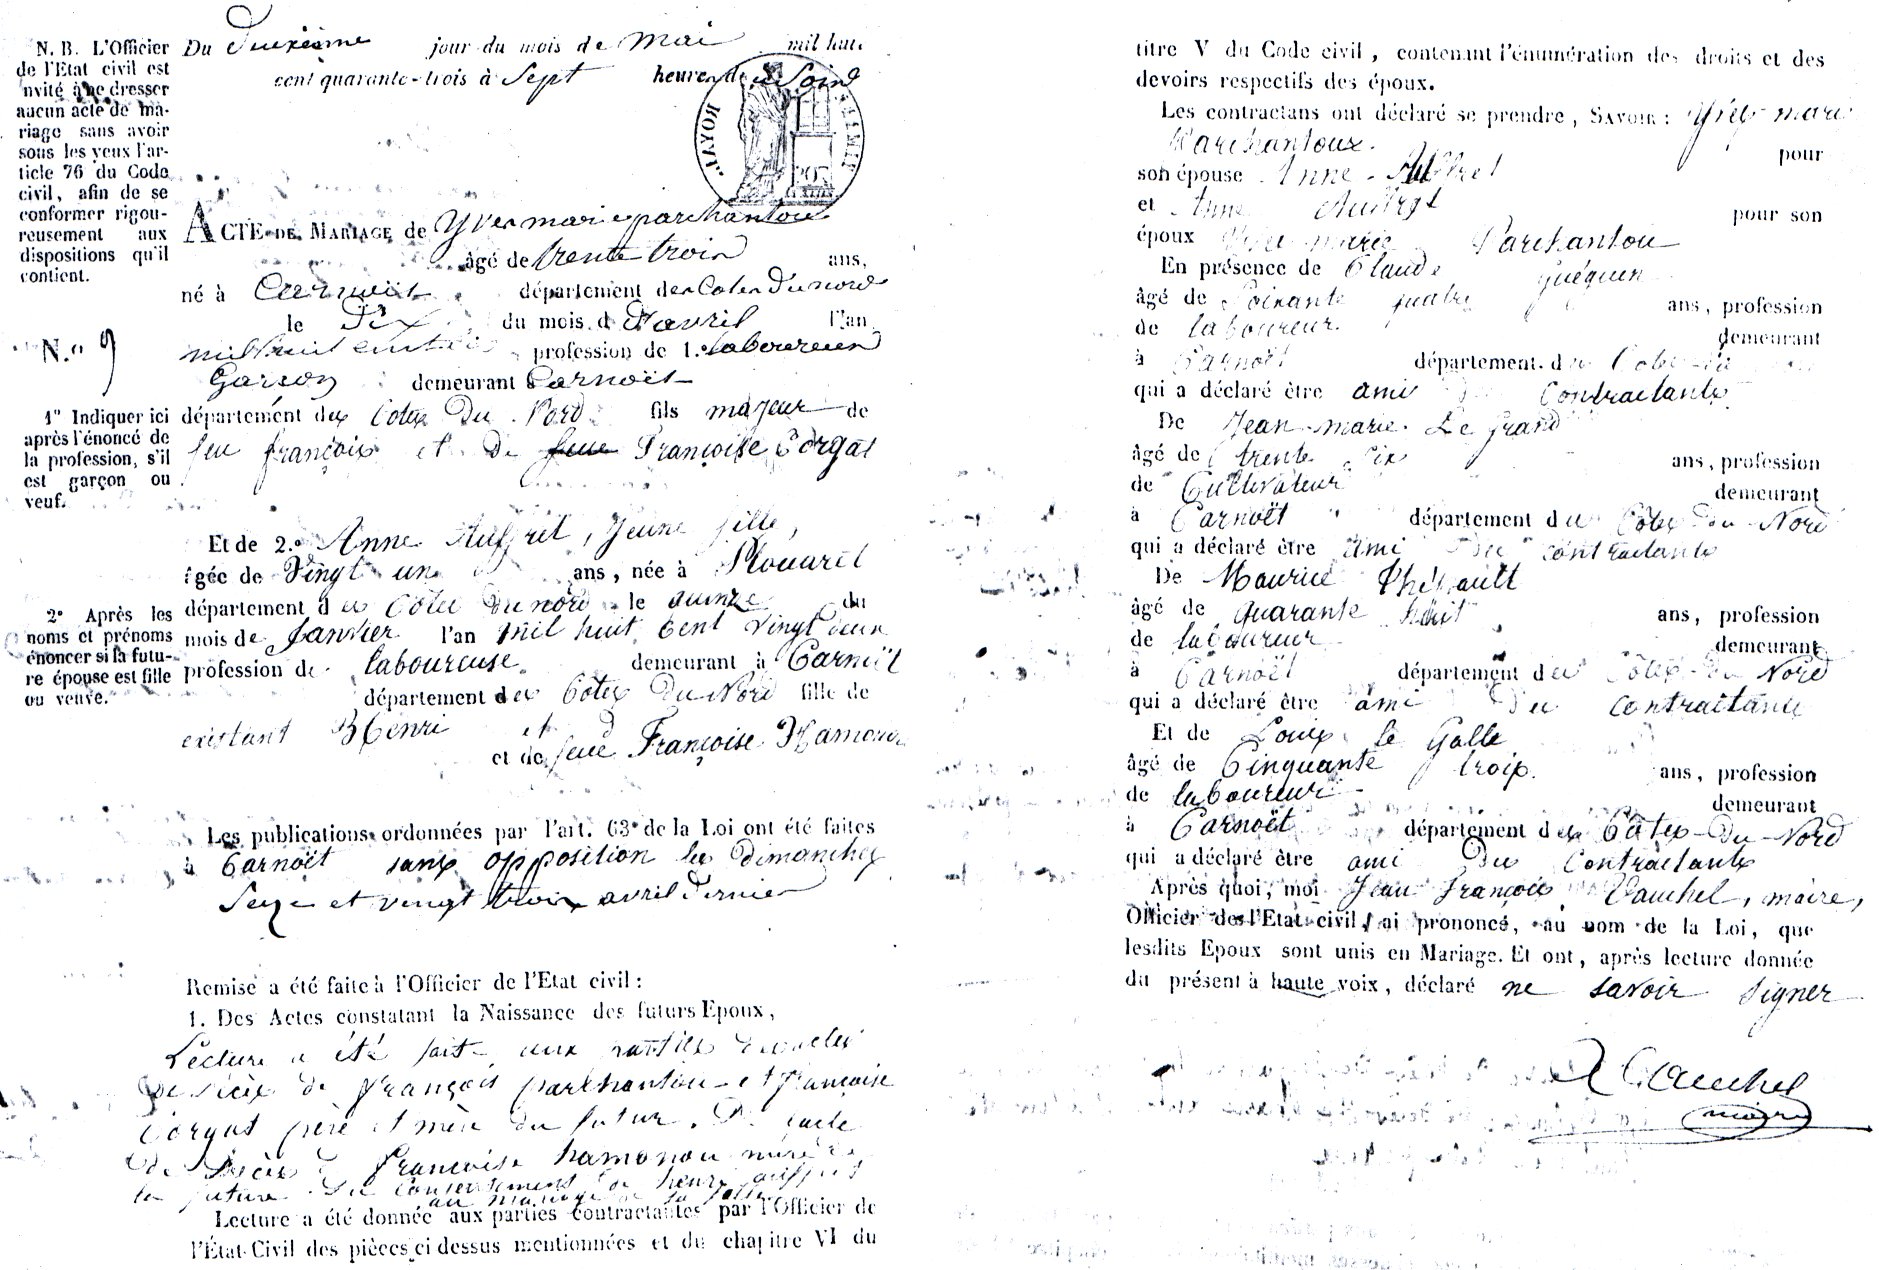 N. B. L'Officier
de l'Etat civil est
nvité à ne dresser
aucun acte de ma-
riage sans avoir
sous les yeux l'ar-
ticle 76 du Code
civil, afin de se
conformer rigou-
reusement aux
dispositions qu'il
contient.
N.º 9
1º Indiquer ici
après l'énoncé de
la profession, s'il
est garçon ou
veuf.
2º Après les
noms et prénoms
énoncer si la futu-
re épouse est fille
ou veuve.
Du Duxième jour du mois de Mai mil huit
cent quarante-trois à Sept heures du Soir
ROYAL
ACTE DE MARIAGE de Yves marie parchantou
âgé de trente trois ans,
né à Carnoët département des Cotes Du nord
le Dix du mois d'avril l'an
mil huit cent dix profession de 1.º laboureur
Garson demeurant à Carnoët
département des Cotes Du Nord fils majeur de
feu françois et de feue Françoise Corgat
Et de 2.º Anne Auffret, Jeune fille,
âgée de Vingt un ans, née à Plouaret
département des Cotes Du nord le quinze du
mois de Janvier l'an mil huit Cent vingt deux
profession de laboureuse demeurant à Carnoët
département des Cotes Du Nord fille de
existant Henri et
et de feue Françoise Hamonou
Les publications ordonnées par l'art. 63 de la Loi ont été faites
à Carnoët sans opposition les Dimanches
Seize et vingt trois avril Dernier
Remise a été faite à l'Officier de l'Etat civil :
1. Des Actes constatant la Naissance des futurs Epoux,
Lecture a été faite aux parties des actes
de décès de françois parchantou et françoise
Corgat père et mère du futur. De l'acte
de Décès de françoise hamonou mère de
la future. Du Consentement de henri auffret
au mariage de sa fille
Lecture a été donnée aux parties contractantes par l'Officier de
l'État-Civil des pièces ci dessus mentionnées et du chapitre VI du
titre V du Code civil, contenant l'énumération des droits et des
devoirs respectifs des époux.
Les contractans ont déclaré se prendre, SAVOIR : Yves marie
Parchantoux pour
son épouse Anne Auffret
et Anne Auffret pour son
époux Yves marie Parchantou
En présence de Claude Guéguen
âgé de Soixante quatre ans, profession
de laboureur demeurant
à Carnoët département des Cotes du
qui a déclaré être ami Des Contractants
De Jean marie Le Grand
âgé de trente six ans, profession
de Cultivateur demeurant
à Carnoët département des Côtes Du Nord
qui a déclaré être ami Des contractants
De Maurice Thépault
âgé de quarante huit ans, profession
de laboureur demeurant
à Carnoët département des Côtes Du Nord
qui a déclaré être ami Des contractants
Et de Louis le Galle
âgé de Cinquante trois ans, profession
de laboureur demeurant
à Carnoët département des Côtes Du Nord
qui a déclaré être ami Des Contractants
Après quoi, moi Jean françois Vauchel, maire,
Officier de l'Etat civil, ai prononcé, au nom de la Loi, que
lesdits Epoux sont unis en Mariage. Et ont, après lecture donnée
du présent à haute voix, déclaré ne savoir signer
Vauchel
maire